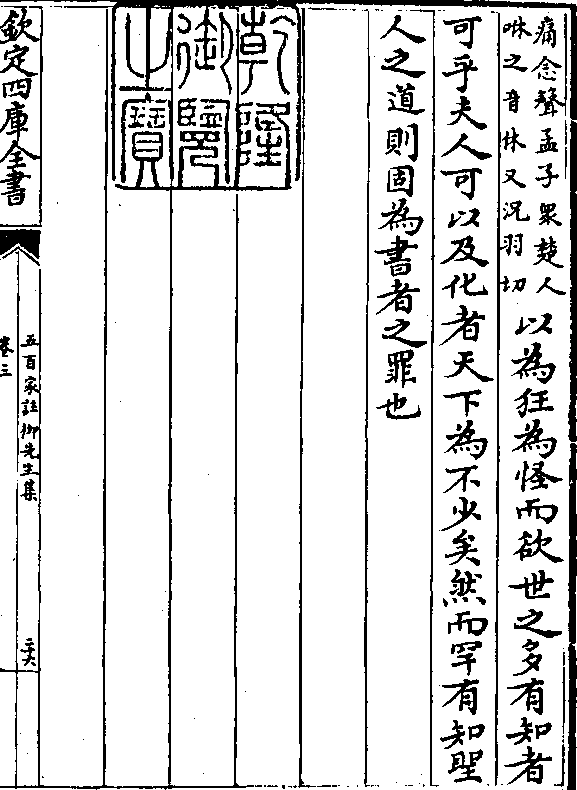 痛念聲孟子衆楚人
咻之音休又況羽切
以為狂為怪而欲世之多有知者
可乎夫人可以及化者天下為不少矣然而罕有知聖
人之道則固為書者之罪也
乾隆
御覽
之寶
欽定四庫全書
五百家註柳先生集
卷三
二六